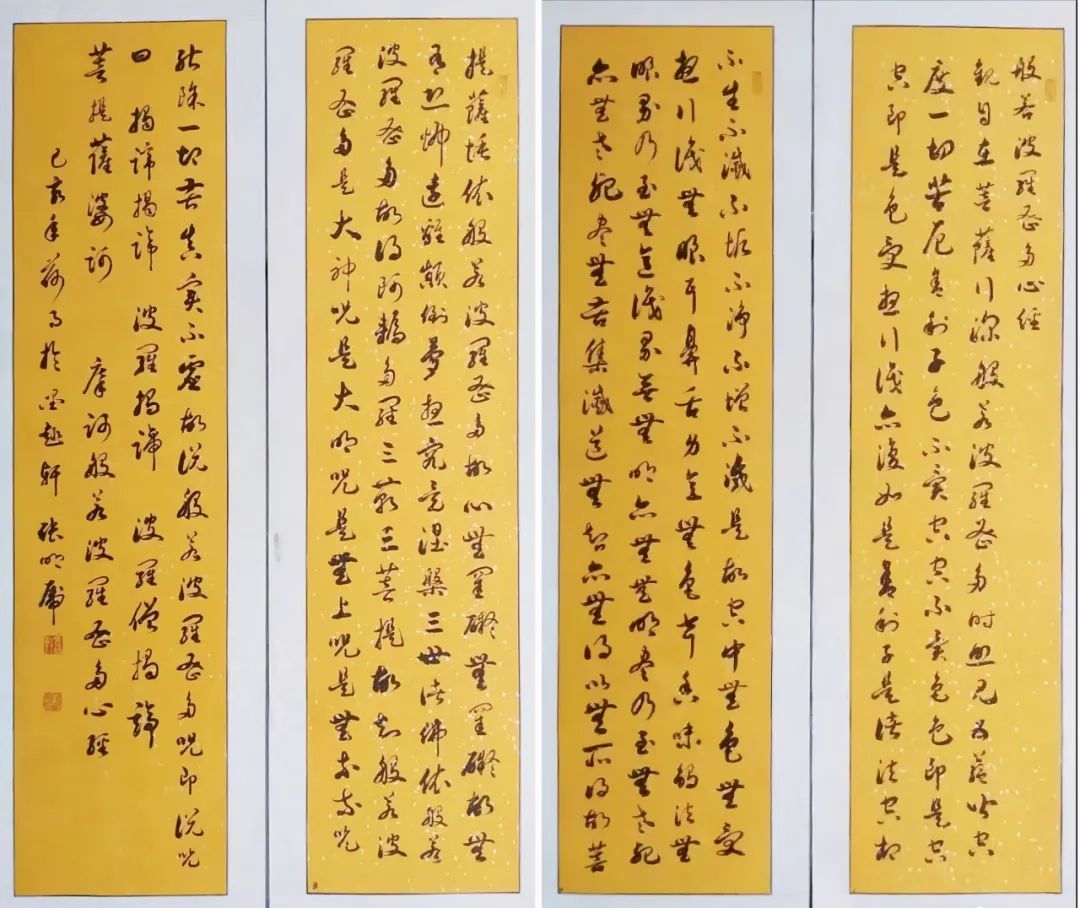 般若波羅蜜多心經
觀自在菩薩行深般若波羅蜜多時照見五蘊皆空
度一切苦厄舍利子色不異空空不異色色即是空
空即是色受想行識亦復如是舍利子是諸法空相
不生不滅不垢不淨不增不減是故空中無色無受
想行識無眼耳鼻舌身意無色聲香味觸法無
眼界乃至無意識界無無明亦無無明盡乃至無老死
亦無老死盡無苦集滅道無智亦無得以無所得故菩
提薩埵依般若波羅蜜多故心無罣礙無罣礙故無
有恐怖遠離顛倒夢想究竟涅槃三世諸佛依般若
波羅蜜多故得阿耨多羅三藐三菩提故知般若波
羅蜜多是大神呪是大明呪是無上呪是無等等呪
能除一切苦真實不虛故說般若波羅蜜多呪即說呪
曰 揭諦揭諦 波羅揭諦 波羅僧揭諦
菩提薩婆訶 摩訶般若波羅蜜多心經
己亥年荷月於墨趣軒 張明虎